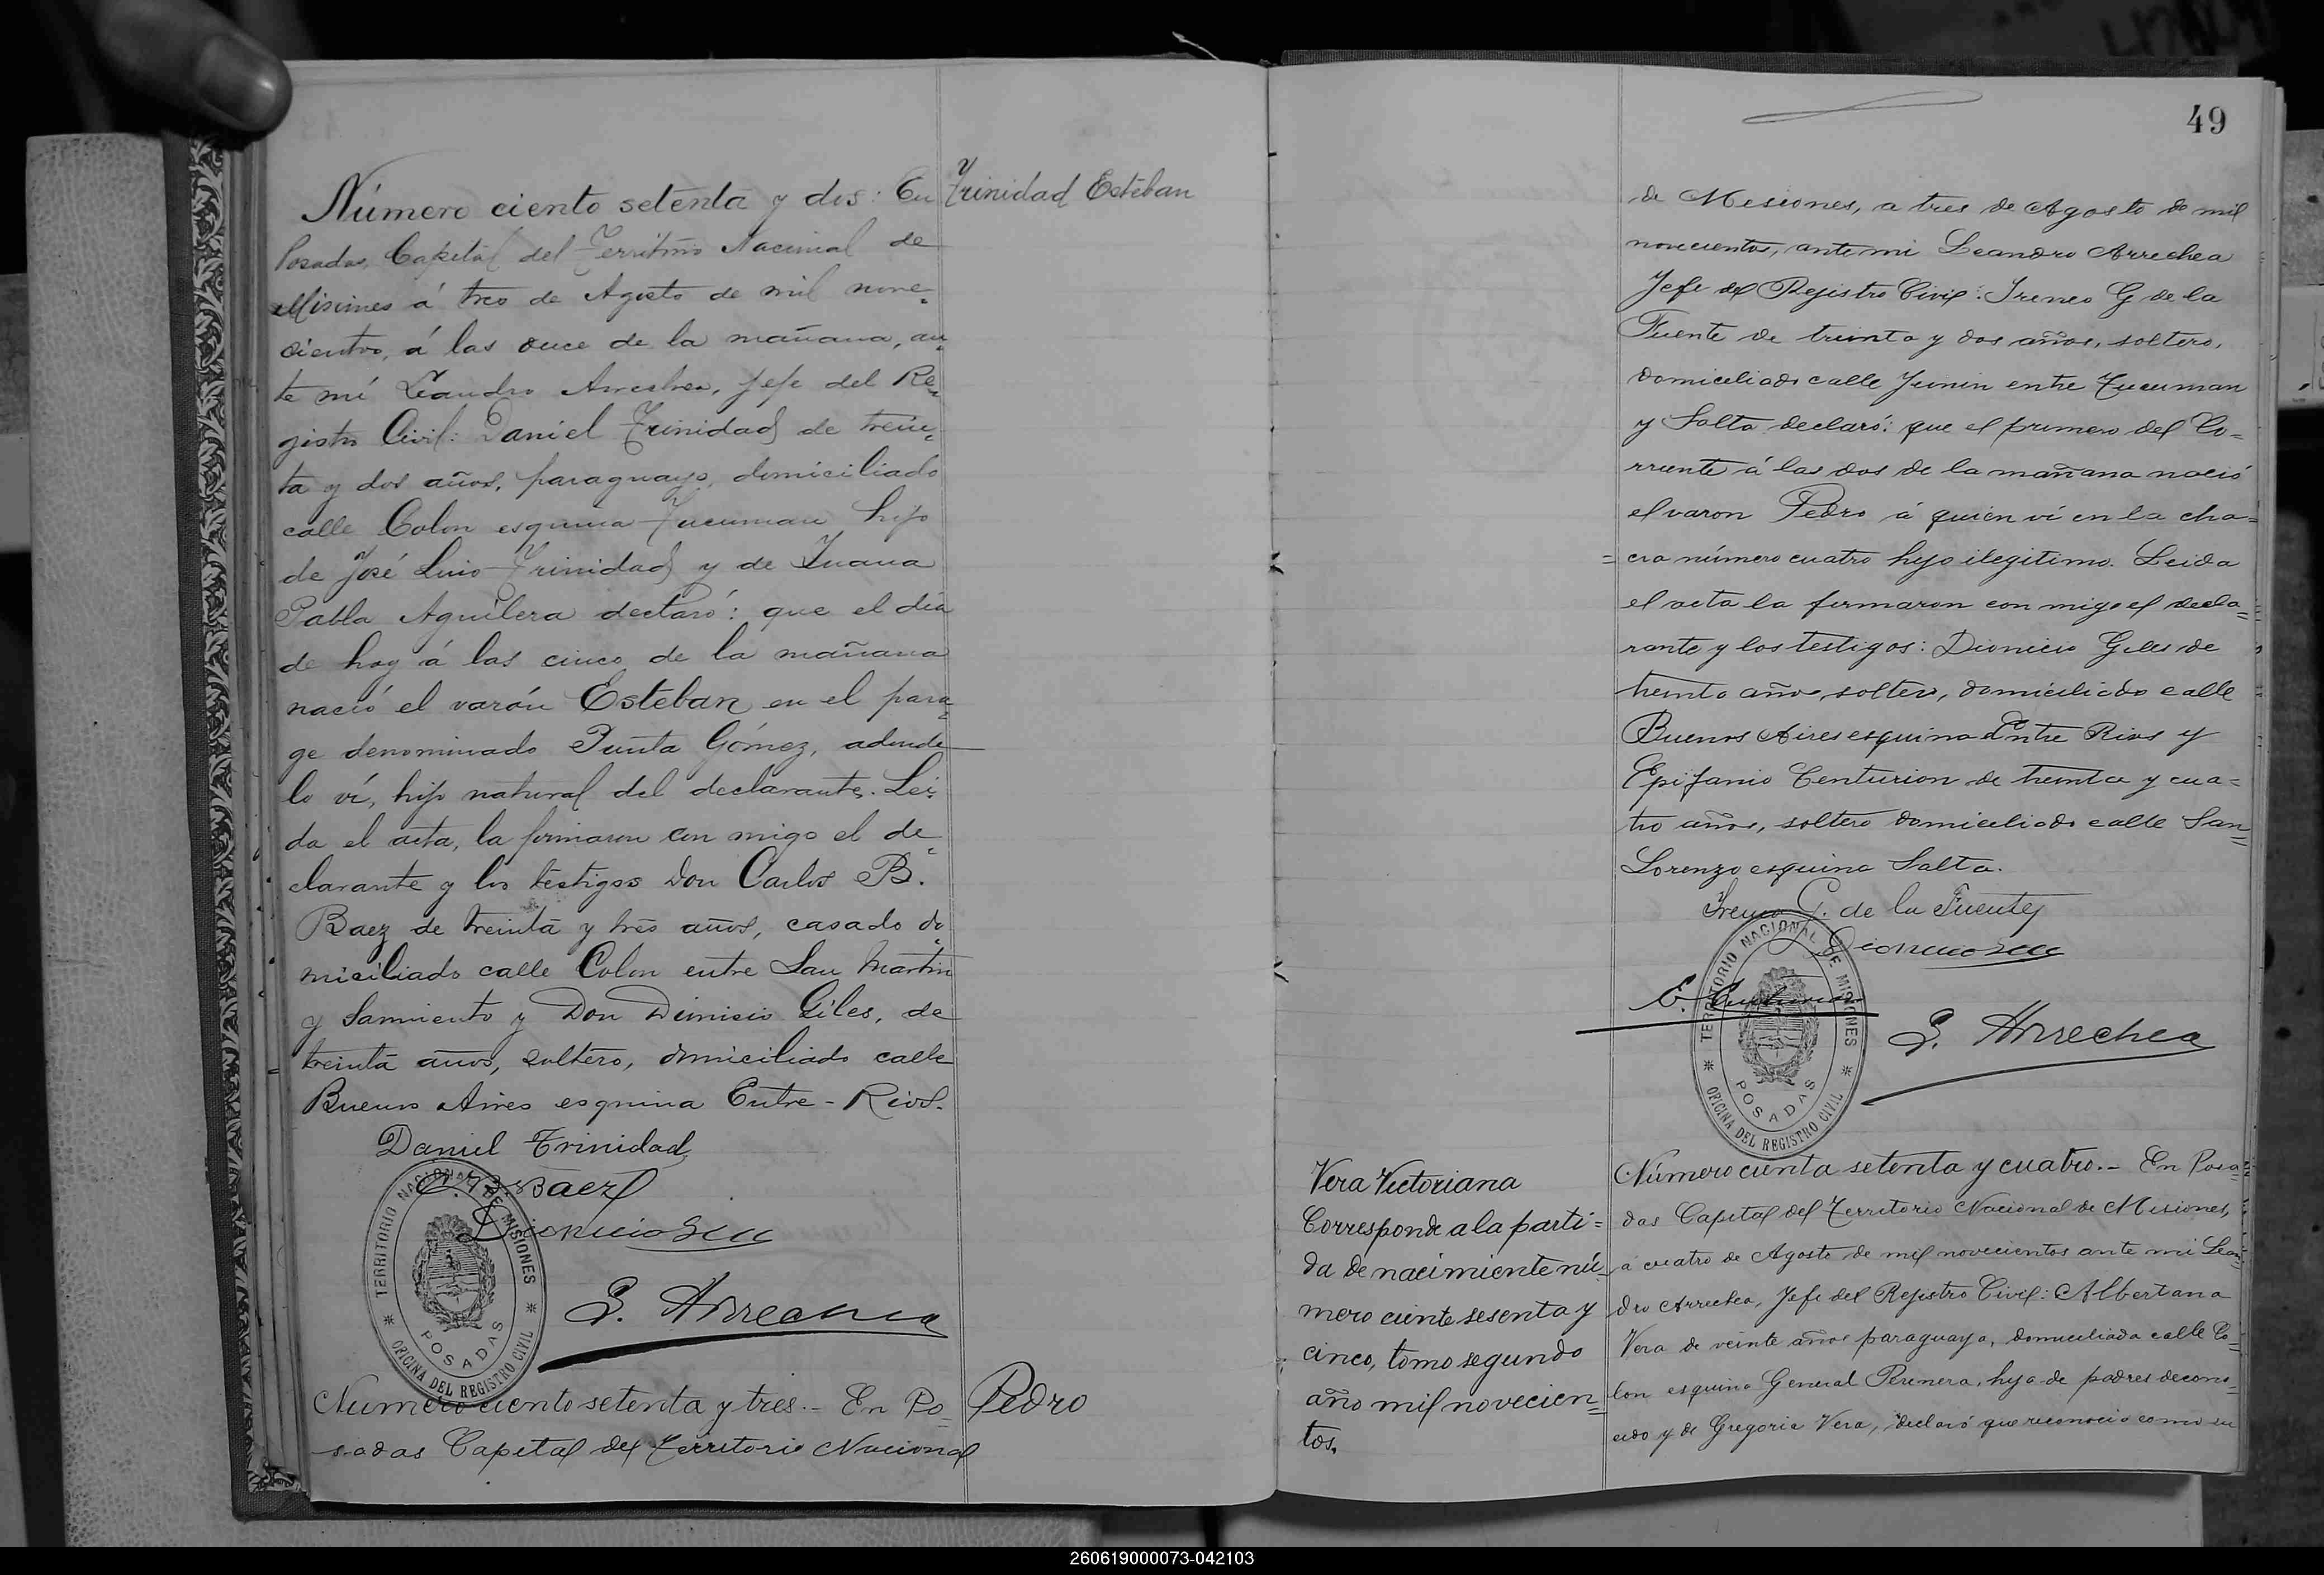 Número ciento setenta y dos: En
Posadas, Capital del Territorio Nacional de
Misiones á tres de Agosto de mil nove-
cientos, á las once de la mañana, an-
te mí Leandro Arrechea, Jefe del Re-
gistro Civil: Daniel Trinidad de trein-
ta y dos años, paraguayo, domiciliado
calle Colon esquina Tucuman hijo
de José Luis Trinidad y de Juana
Pabla Aguilera declaró: que el dia
de hoy á las cinco de la mañana
nació el varón Esteban en el para-
ge denominado Punta Gómez, adonde
lo ví, hijo natural del declarante. Lei-
da el acta, la firmaron con migo el de-
clarante y los testigos Don Carlos B.
Baez de treinta y tres años, casado do-
miciliado calle Colon entre San Martin
y Sarmiento y Don Dionisio Giles, de
treinta años, soltero, domiciliado calle
Buenos Aires esquina Entre-Rios.
Daniel Trinidad
C. B. Baez
Dionicio
L. Arrechea
TERRITORIO NACIONAL DE MISIONES
POSADAS
OFICINA DEL REGISTRO CIVIL
Trinidad Esteban
Número ciento setenta y tres.- En Po-
sadas Capital del Territorio Nacional
Pedro
49
de Misiones, a tres de Agosto de mil
novecientos, ante mi Leandro Arrechea
Jefe del Rejistro Civil: Ireneo G de la
Fuente de treinta y dos años, soltero,
domiciliado calle Junin entre Tucuman
y Salta declaró: que el primero del Co-
rriente á las dos de la mañana nació
el varon Pedro á quien ví en la cha-
cra número cuatro hijo ilegitimo. Leida
el acta la firmaron con migo el decla-
rante y los testigos: Dionicio Giles de
treinta años, soltero, domiciliado calle
Buenos Aires esquina Entre Rios y
Epifanio Centurion de treinta y cua-
tro años, soltero domiciliado calle San
Lorenzo esquina Salta.
Ireneo G. de la Fuente
Dionicio
E. Centurion
L. Arrechea
TERRITORIO NACIONAL DE MISIONES
POSADAS
OFICINA DEL REGISTRO CIVIL
Vera Victoriana
Corresponde a la parti-
da de nacimiento nú-
mero ciento sesenta y
cinco, tomo segundo
año mil novecien-
tos.
Número cienta setenta y cuatro.- En Posa-
das Capital del Territorio Nacional de Misiones,
a cuatro de Agosto de mil novecientos ante mi Lean-
dro Arrechea, Jefe del Rejistro Civil: Albertana
Vera de veinte años paraguaya, domiciliada calle Co-
lon esquina General Rivera, hija de padres descono-
cido y de Gregoria Vera, declaró que reconocio como su
260619000073-042103